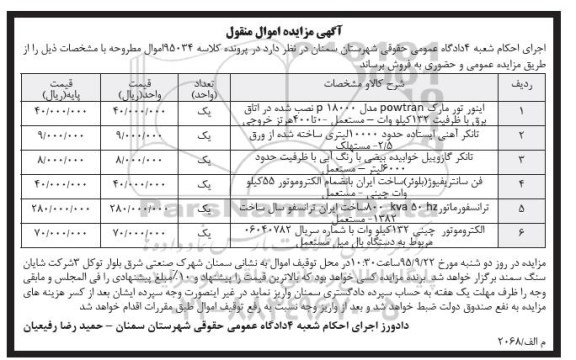 آگهی مزایده اموال منقول
اجرای احکام شعبه ۴دادگاه عمومی حقوقی شهرستان سمنان در نظر دارد در پرونده کلاسه ۹۵۰۳۴اموال مطروحه با مشخصات ذیل را از
طریق مزایده عمومی و حضوری به فروش برساند.
ردیف شرح کالاو مشخصات تعداد (واحد) قیمت واحد(ریال) قیمت پایه(ریال)
۱ اینور تور مارک powtran مدل p ۱۸۰۰۰ نصب شده در اتاق برق با ظرفیت ۱۳۲کیلو وات – مستعمل ۰۰تا۴۰۰هرتز خروجی یک ۴۰/۰۰۰/۰۰۰ ۴۰/۰۰۰/۰۰۰
۲ تانکر آهنی ایستاده حدود ۱۰۰۰۰لیتری ساخته شده از ورق ۲/۵- مستهلک یک ۹/۰۰۰/۰۰۰ ۹/۰۰۰/۰۰۰
۳ تانکر گازوییل خوابیده بیضی با رنگ آبی با ظرفیت حدود ۶۰۰۰لیتر – مستعمل یک ۸/۰۰۰/۰۰۰ ۸/۰۰۰/۰۰۰
۴ فن سانتریفیوژ(بلوئر)ساخت ایران بانضمام الکتروموتور ۵۵کیلو وات چینی - مستعمل یک ۴۰/۰۰۰/۰۰۰ ۴۰/۰۰۰/۰۰۰
۵ ترانسفورماتور۸۰۰ kva ۵۰ hzساخت ایران ترانسفو سال ساخت ۱۳۸۲- مستعمل یک ۲۸۰/۰۰۰/۰۰۰ ۲۸۰/۰۰۰/۰۰۰
۶ الکتروموتور چینی ۱۳۲کیلو وات با شماره سریال ۰۶۰۴۰۷۸۲ مربوط به دستگاه بال میل مستعمل یک ۷۰/۰۰۰/۰۰۰ ۷۰/۰۰۰/۰۰۰
مزایده در روز دو شنبه مورخ ۹۵/۹/۲۲ساعت۱۰:۳۰در محل توقیف اموال به نشانی سمنان شهرک صنعتی شرق بلوار توکل ۳شرکت شایان
سنگ سمند برگزار خواهد شد. برنده مزایده کسی خواهد بود که بالاترین قیمت را پیشنهاد و۱۰٪مبلغ پیشنهادی را فی المجلس و مابقی
وجه را ظرف مهلت یک هفته به حساب سپرده دادگستری سمنان واریز نماید در غیر اینصورت وجه سپرده ایشان بعد از کسر هزینه های
مزایده به نفع صندوق دولت ضبط خواهد شد و بعد از واریز وجه نسبت به رفع توقیف اموال طبق مقررات اقدام خواهد شد
دادورز اجرای احکام شعبه ۴دادگاه عمومی حقوقی شهرستان سمنان – حمید رضا رفیعیان
م الف/۲۰۶۸